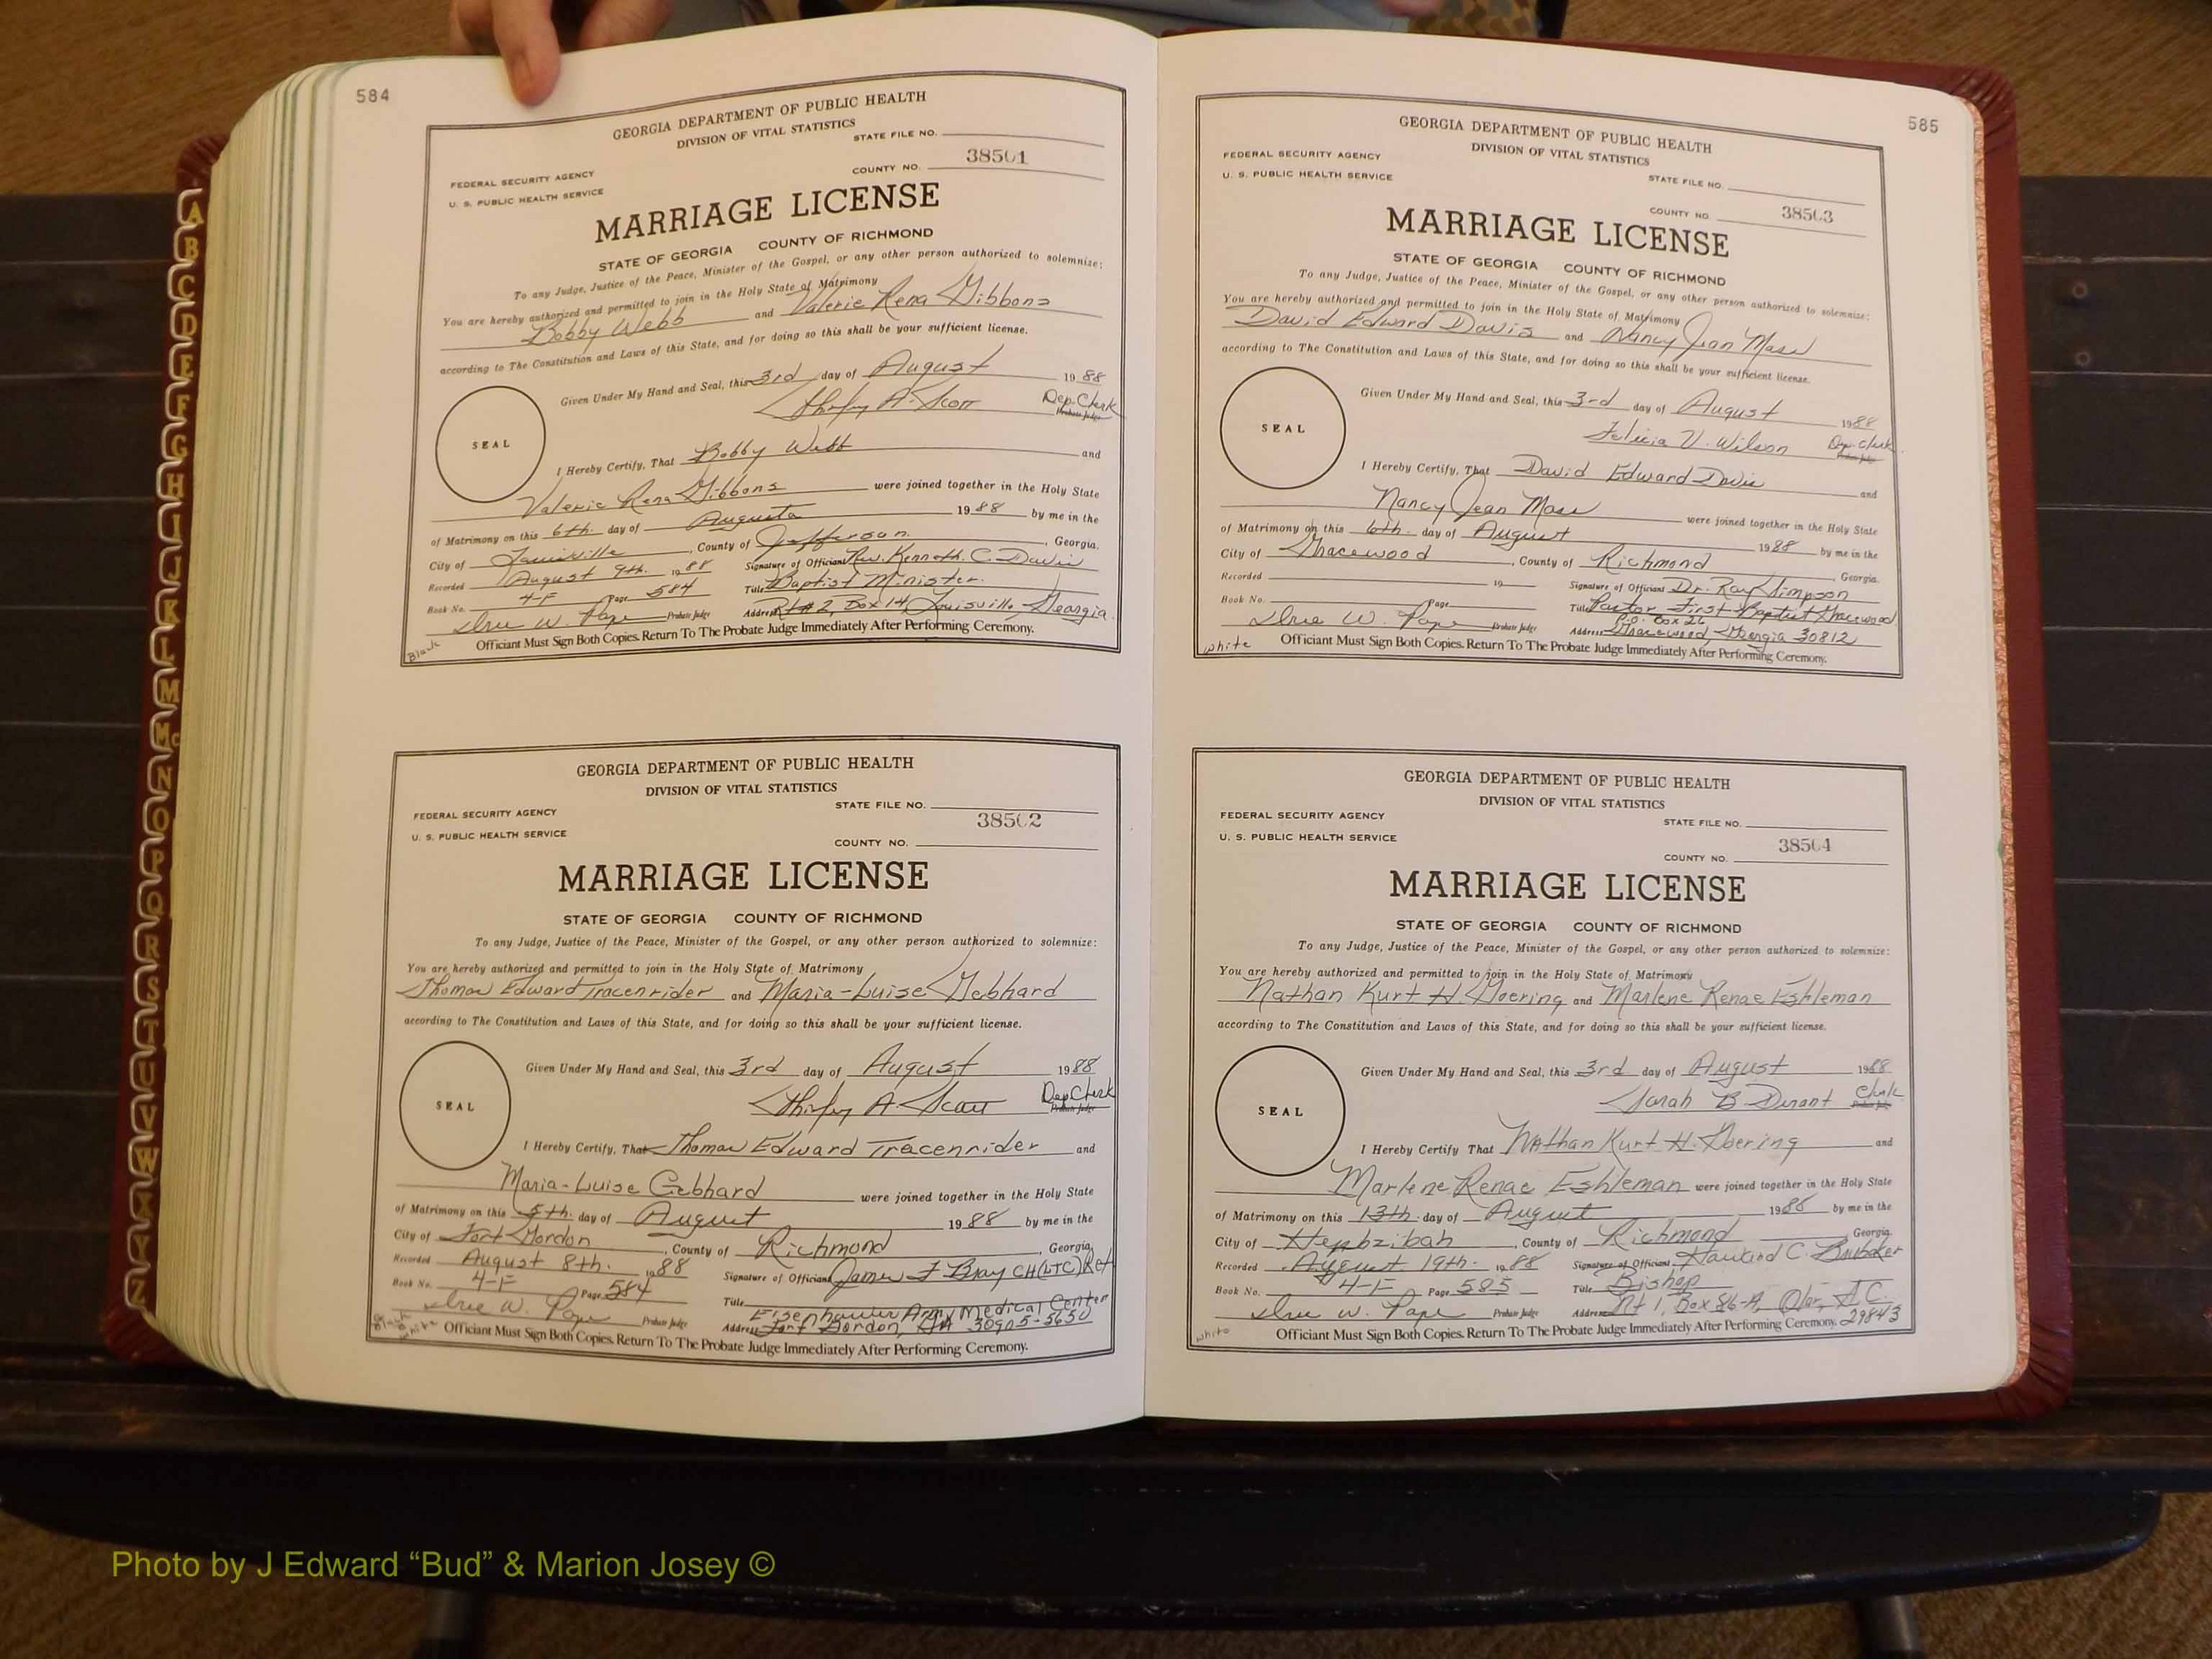 584
GEORGIA DEPARTMENT OF PUBLIC HEALTH
DIVISION OF VITAL STATISTICS
STATE FILE NO.
FEDERAL SECURITY AGENCY
COUNTY NO. 38501
U. S. PUBLIC HEALTH SERVICE
MARRIAGE LICENSE
STATE OF GEORGIA COUNTY OF RICHMOND
To any Judge, Justice of the Peace, Minister of the Gospel, or any other person authorized to solemnize:
You are hereby authorized and permitted to join in the Holy State of Matrimony
Bobby Webb and Valerie Rena Gibbons
according to The Constitution and Laws of this State, and for doing so this shall be your sufficient license.
Given Under My Hand and Seal, this 3rd day of August 1988
Shirley A. Scott Dep. Clerk
Probate Judge
SEAL
I Hereby Certify, That Bobby Webb and
Valerie Rena Gibbons were joined together in the Holy State
of Matrimony on this 6th. day of Augusta 1988 by me in the
City of Louisville, County of Jefferson, Georgia.
Recorded August 9th. 1988 Signature of Officiant Rev. Kenneth. C. Davis
Book No. 4-F Page 584 Title Baptist Minister.
Probate Judge Address Rt# 2, Box 14, Louisville, Georgia.
Officiant Must Sign Both Copies. Return To The Probate Judge Immediately After Performing Ceremony.
Black
GEORGIA DEPARTMENT OF PUBLIC HEALTH
DIVISION OF VITAL STATISTICS
STATE FILE NO.
FEDERAL SECURITY AGENCY
38502
U. S. PUBLIC HEALTH SERVICE
COUNTY NO.
MARRIAGE LICENSE
STATE OF GEORGIA COUNTY OF RICHMOND
To any Judge, Justice of the Peace, Minister of the Gospel, or any other person authorized to solemnize:
You are hereby authorized and permitted to join in the Holy State of Matrimony
Thomas Edward Tracenrider and Maria-Luise Gebhard
according to The Constitution and Laws of this State, and for doing so this shall be your sufficient license.
Given Under My Hand and Seal, this 3rd day of August 1988
Shirley A. Scott Dep Clerk
Probate Judge
SEAL
I Hereby Certify, That Thomas Edward Tracenrider and
Maria-Luise Gebhard were joined together in the Holy State
of Matrimony on this 5th. day of August 1988 by me in the
City of Fort Gordon, County of Richmond, Georgia.
Recorded August 8th. 1988 Signature of Officiant James F Bray CH(LTC) Ret
Book No. 4-F Page 584 Title Eisenhower Army Medical Center
Probate Judge Address Fort Gordon, GA 30905-5650
Black White
Officiant Must Sign Both Copies. Return To The Probate Judge Immediately After Performing Ceremony.
585
GEORGIA DEPARTMENT OF PUBLIC HEALTH
DIVISION OF VITAL STATISTICS
FEDERAL SECURITY AGENCY
STATE FILE NO.
U. S. PUBLIC HEALTH SERVICE
COUNTY NO. 38503
MARRIAGE LICENSE
STATE OF GEORGIA COUNTY OF RICHMOND
To any Judge, Justice of the Peace, Minister of the Gospel, or any other person authorized to solemnize:
You are hereby authorized and permitted to join in the Holy State of Matrimony
David Edward Davis and Nancy Jean
according to The Constitution and Laws of this State, and for doing so this shall be your sufficient license.
Given Under My Hand and Seal, this 3rd day of August 1988
Felicia V. Wilson Dep. Clerk
SEAL
I Hereby Certify, That David Edward Davis and
Nancy Jean were joined together in the Holy State
of Matrimony on this 6th. day of August 1988 by me in the
City of Gracewood, County of Richmond, Georgia.
Recorded 19 Signature of Officiant Dr. Ray Simpson
Book No. Page Title Pastor First Baptist Gracewood
P.O. Box 26
Probate Judge Address Gracewood, Georgia 30812
white
Officiant Must Sign Both Copies. Return To The Probate Judge Immediately After Performing Ceremony.
GEORGIA DEPARTMENT OF PUBLIC HEALTH
DIVISION OF VITAL STATISTICS
FEDERAL SECURITY AGENCY
STATE FILE NO.
U. S. PUBLIC HEALTH SERVICE
38504
COUNTY NO.
MARRIAGE LICENSE
STATE OF GEORGIA COUNTY OF RICHMOND
To any Judge, Justice of the Peace, Minister of the Gospel, or any other person authorized to solemnize:
You are hereby authorized and permitted to join in the Holy State of Matrimony
Nathan Kurt H Goering and Marlene Renae Eshleman
according to The Constitution and Laws of this State, and for doing so this shall be your sufficient license.
Given Under My Hand and Seal, this 3rd day of August 1988
Sarah B. Durant Clerk
SEAL
I Hereby Certify That Nathan Kurt H. Goering and
Marlene Renae Eshleman were joined together in the Holy State
of Matrimony on this 13th day of August 1988 by me in the
City of Hephzibah, County of Richmond Georgia.
Recorded August 19th. 1988 Signature of Officiant C. Brubaker
Book No. 4-F Page 585 Title Bishop
Probate Judge Address Rt 1, Box 86-A, Olar, S.C.
29843
white
Officiant Must Sign Both Copies. Return To The Probate Judge Immediately After Performing Ceremony.
A
B
C
D
E
F
G
H
I
J
K
L
M
Mc
N
O
P
Q
R
S
T
U
V
W
X
Y
Z
Photo by J Edward “Bud” & Marion Josey ©